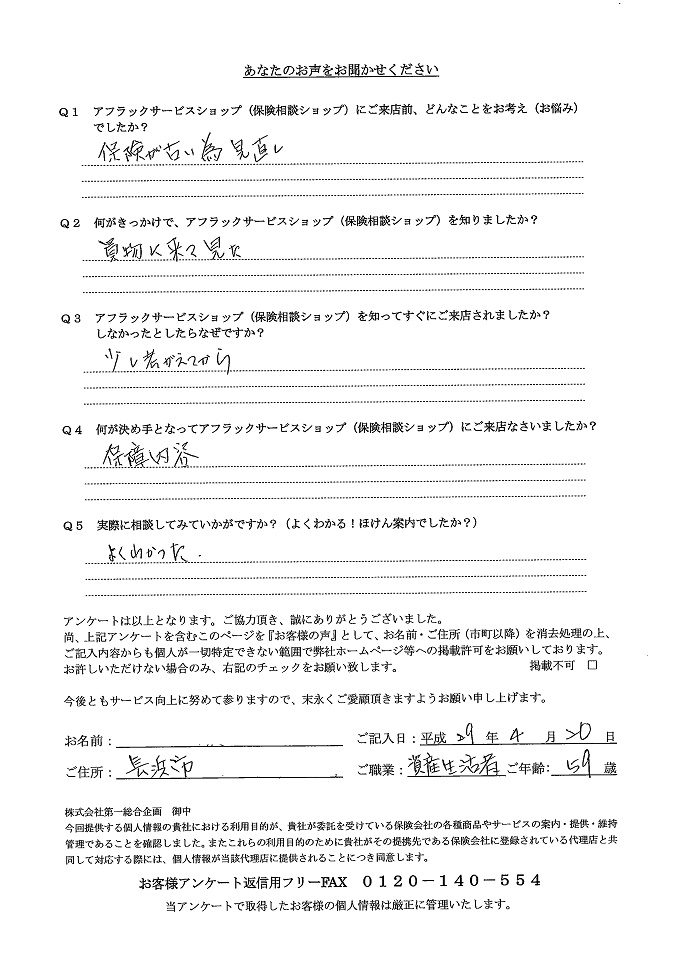 あなたのお声をお聞かせください
Q1 アフラックサービスショップ（保険相談ショップ）にご来店前、どんなことをお考え（お悩み）
でしたか？
保険が古い為見直し
Q2 何がきっかけで、アフラックサービスショップ（保険相談ショップ）を知りましたか？
買物に来て見た
Q3 アフラックサービスショップ（保険相談ショップ）を知ってすぐにご来店されましたか？
しなかったとしたらなぜですか？
少し考がえてから
Q4 何が決め手となってアフラックサービスショップ（保険相談ショップ）にご来店なさいましたか？
保障内容
Q5 実際に相談してみていかがですか？（よくわかる！ほけん案内でしたか？）
よくわかった.
アンケートは以上となります。ご協力頂き、誠にありがとうございました。
尚、上記アンケートを含むこのページを『お客様の声』として、お名前・ご住所（市町以降）を消去処理の上、
ご記入内容からも個人が一切特定できない範囲で弊社ホームページ等への掲載許可をお願いしております。
お許しいただけない場合のみ、右記のチェックをお願い致します。 掲載不可 □
今後ともサービス向上に努めて参りますので、末永くご愛顧頂きますようお願い申し上げます。
お名前： ご記入日：平成 29 年 4 月 20 日
ご住所： 長浜市 ご職業：資産生活者 ご年齢： 59 歳
株式会社第一総合企画 御中
今回提供する個人情報の貴社における利用目的が、貴社が委託を受けている保険会社の各種商品やサービスの案内・提供・維持
管理であることを確認しました。またこれらの利用目的のために貴社がその提携先である保険会社に登録されている代理店と共
同して対応する際には、個人情報が当該代理店に提供されることにつき同意します。
お客様アンケート返信用フリーFAX 0120－140－554
当アンケートで取得したお客様の個人情報は厳正に管理いたします。